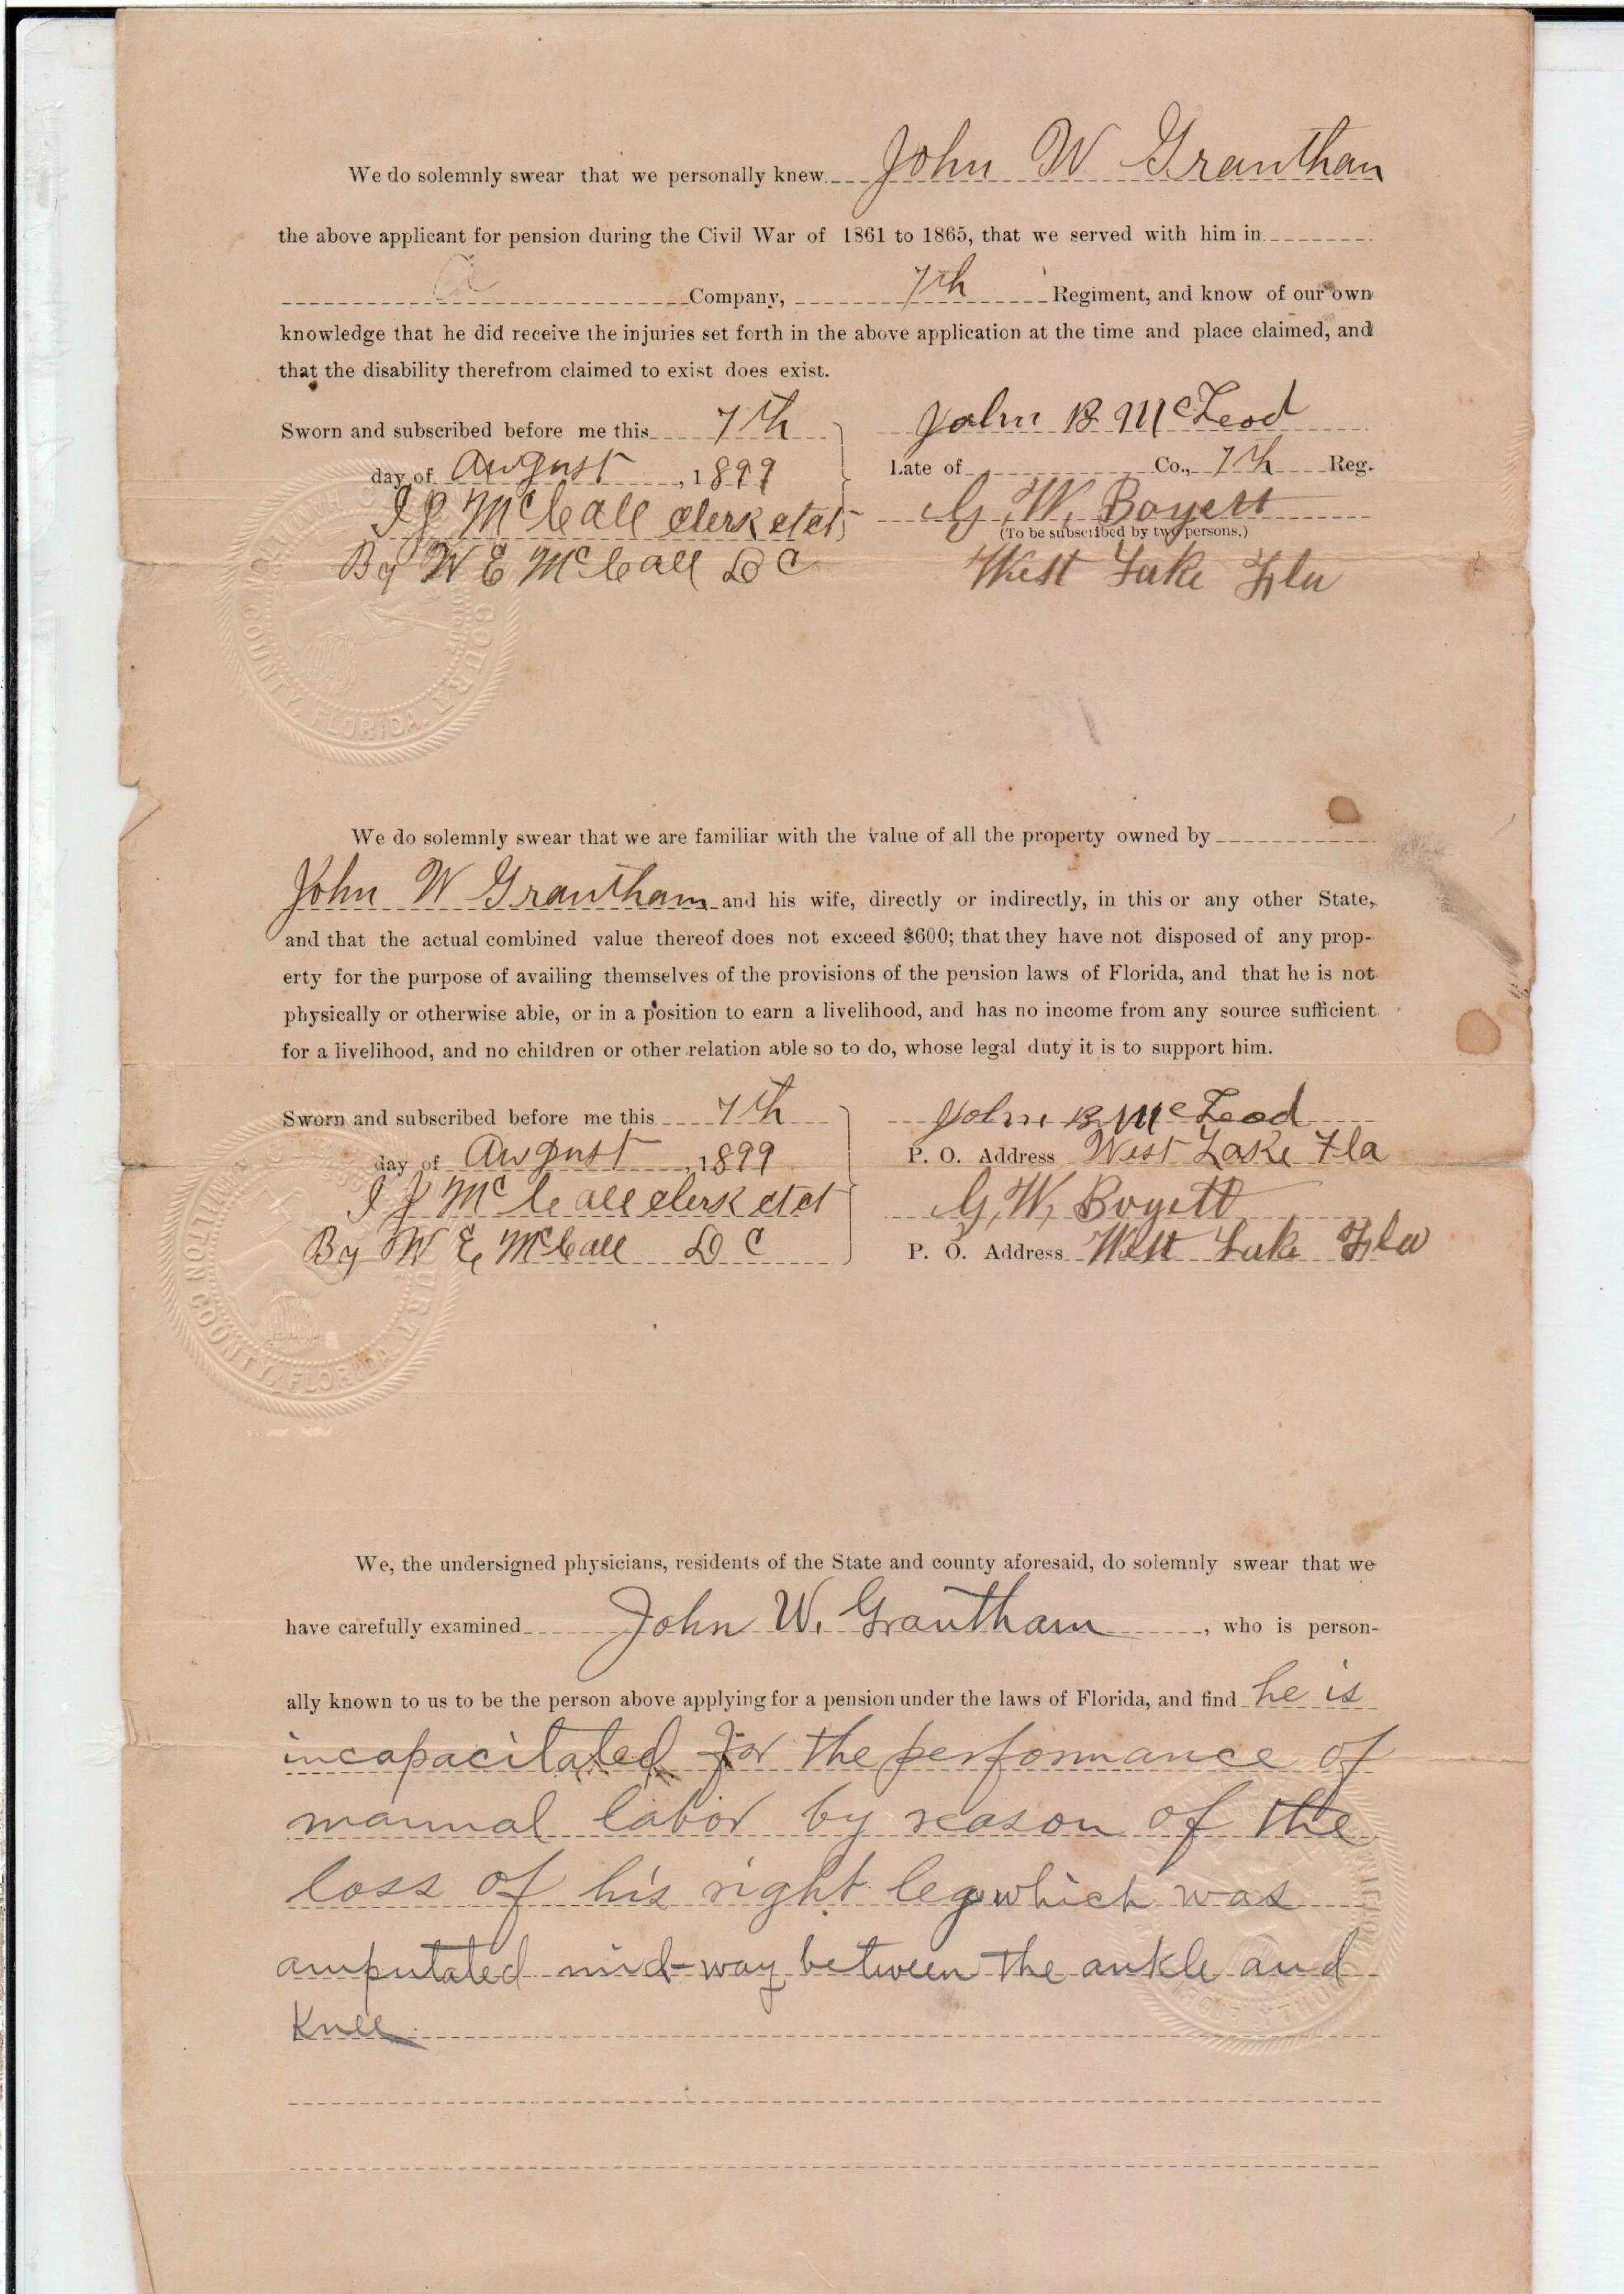 We do solemnly swear that we personally knew John W Granthan
the above applicant for pension during the Civil War of 1861 to 1865, that we served with him in
a Company, 7th Regiment, and know of our own
knowledge that he did receive the injuries set forth in the above application at the time and place claimed, and
that the disability therefrom claimed to exist does exist.
Sworn and subscribed before me this 7th
day of August, 1899
J J McCall clerk ct ct
By W E McCall D C
John B McLeod
Late of Co., 7th Reg.
G. W. Boyett
(To be subscribed by two persons.)
West Lake Fla
COURT
COUNTY, FLORIDA.
We do solemnly swear that we are familiar with the value of all the property owned by
John W Grantham and his wife, directly or indirectly, in this or any other State,
and that the actual combined value thereof does not exceed $600; that they have not disposed of any prop-
erty for the purpose of availing themselves of the provisions of the pension laws of Florida, and that he is not
physically or otherwise able, or in a position to earn a livelihood, and has no income from any source sufficient
for a livelihood, and no children or other relation able so to do, whose legal duty it is to support him.
Sworn and subscribed before me this 7th
day of August, 1899
J J McCall clerk ct ct
By W E McCall D C
John B McLeod
P. O. Address West Lake Fla
G. W. Boyett
P. O. Address West Lake Fla
HAMILTON COUNTY, FLORIDA
We, the undersigned physicians, residents of the State and county aforesaid, do solemnly swear that we
have carefully examined John W. Grantham, who is person-
ally known to us to be the person above applying for a pension under the laws of Florida, and find he is
incapacitated for the performance of
manual labor by reason of the
loss of his right leg which was
amputated mid-way between the ankle and
Knee